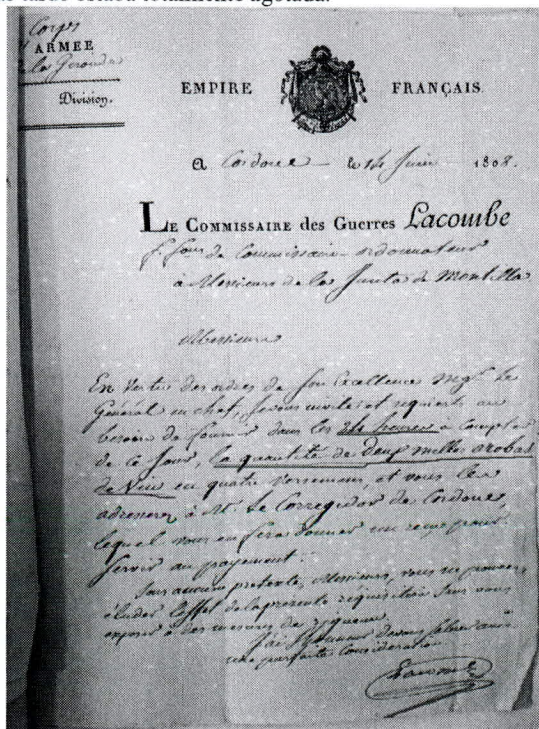 tarde estaba totalmente agotada.
Corps
ARMEE
de la Gironde
Division.
EMPIRE FRANÇAIS.
A Cordoue le 14 Juin 1808.
LE COMMISSAIRE des Guerres Lacombe
f. fons de Commissaire ordonnateur
à Messieurs de la Junta de Montilla
Messieurs
En Vertu des ordres de Son Excellence Mgr Le
Général en chef, Je vous invite et requiers au
besoin de fournir dans les 24 heures à compter
de ce Jour, la quantité de deux milles arobas
de Vin en quatre Versemens, et vous les
adresserez à Mr. Le Corregidor de Cordoue,
lequel vous en fera donner un reçu pour
Servir au payement.
Sous aucun prétexte, Messieurs, vous ne pouvez
éluder l'effet de la présente réquisition sans vous
exposer à des mesures de rigueur.
J'ai l'honneur de vous saluer avec
une parfaite Considération
Lacombe